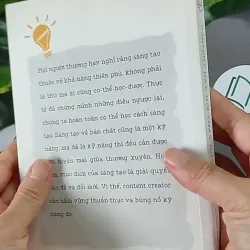 Mọi người thường hay nghĩ rằng sáng tạo
thuộc về khả năng thiên phú, không phải
là thứ mà ai cũng có thể học được. Thực
tế đã chứng minh những điều ngược lại,
chúng ta hoàn toàn có thể học cách sáng
tạo. Sáng tạo về bản chất cũng là một kỹ
năng, mà đã là kỹ năng thì đều cần được
luyện mài giũa thường xuyên.
mục đích của sáng tạo là giải quyết
vấn đề và đổi mới. Vì thế, content creator
cần nắm vững thuần thục và bùng nổ kỹ
năng đó.